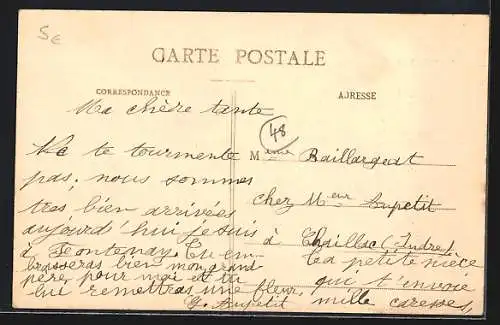 5e
CARTE POSTALE
CORRESPONDANCE
ADRESSE
Ma chère tante
48
Ne te tourmente
pas, nous sommes
tres bien arrivées
aujourd'hui je suis
à Fontenay. Tu em
brasseras bien mon grand
père pour moi et tu
lui remettras une fleur,
G. Lupetit
Mme Baillargeat
chez Meur Lupetit
à Chaillac (Indre)
ta petite nièce
qui t'envoie
mille caresses,